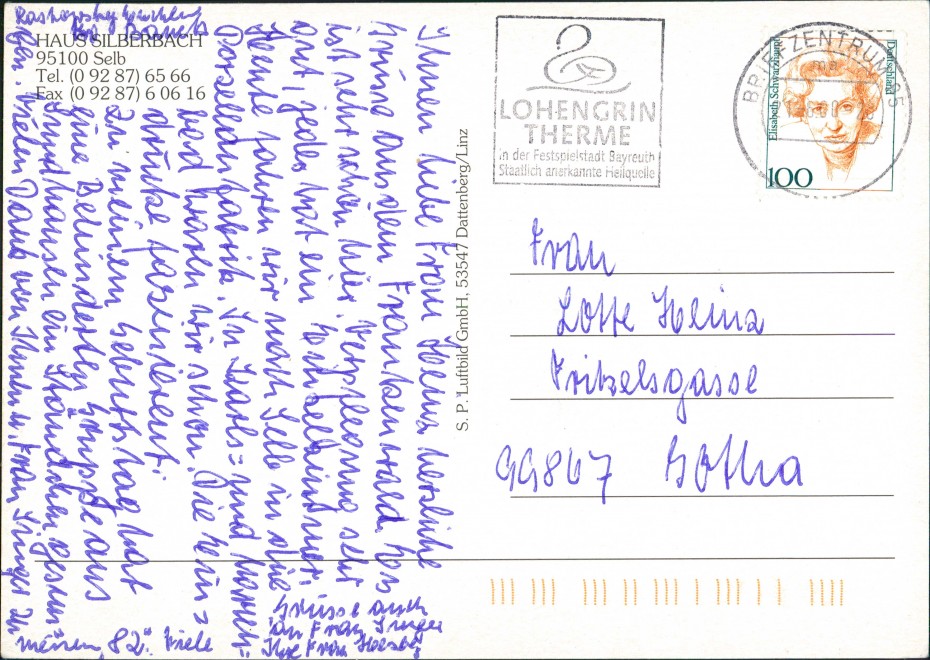 HAUS SILBERBACH
95100 Selb
Tel. (0 92 87) 65 66
Fax (0 92 87) 6 06 16
Ihnen liebe Frau Heinz herzliche
Grüsse aus dem Frankenwald. Es
ist sehr schön hier. Verpflegung sehr
gut, jeder hat ein Einzelzimmer.
Heute fahren wir nach Selb in die
Porzellanfabrik. In Karls= und Marien=
bad waren wir schon. Die Ein=
drücke faszinierent.
Zu meinem Geburtstag hat
eine Gruppe aus
ein Ständchen gesun=
gen. Vielen Dank von Ihnen u. Frau Singer zu
meinem 82. Viele
Grüsse auch
an Frau Singer
Ihre Frau
S. P. Luftbild GmbH, 53547 Dattenberg/Linz
LOHENGRIN
THERME
in der Festspielstadt Bayreuth
Staatlich anerkannte Heilquelle
BRIEFZENTRUM 95
Elisabeth Schwarzhaupt
Deutschland
100
Frau
Lotte Heinz
Fritzelsgasse
99867 Gotha